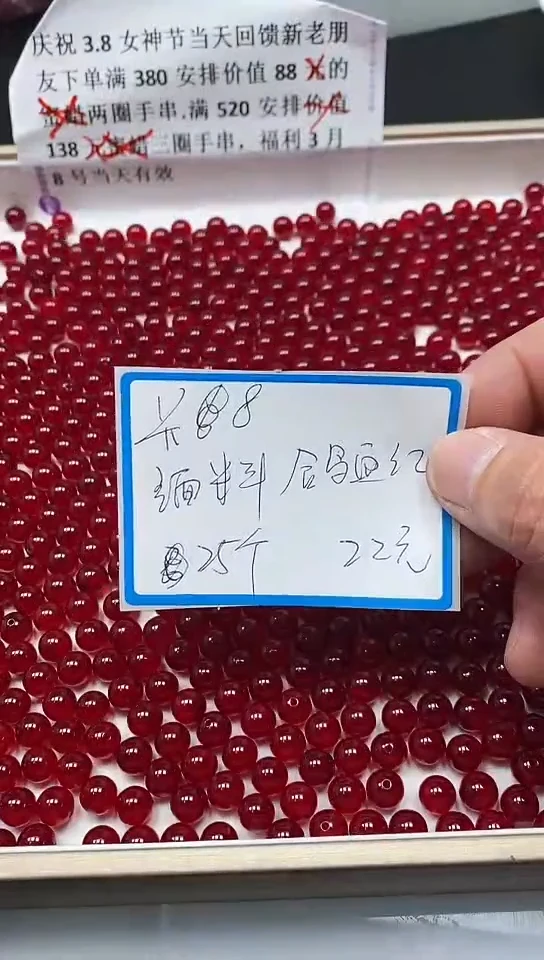 庆祝 3.8 女神节当天回馈新老朋
友下单满 380 安排价值 88 元的
蜜蜡两圈手串.满 520 安排价值
138 元蜜蜡三圈手串，福利 3 月
8 号当天有效
8
缅料 鸽血红
25个 22元